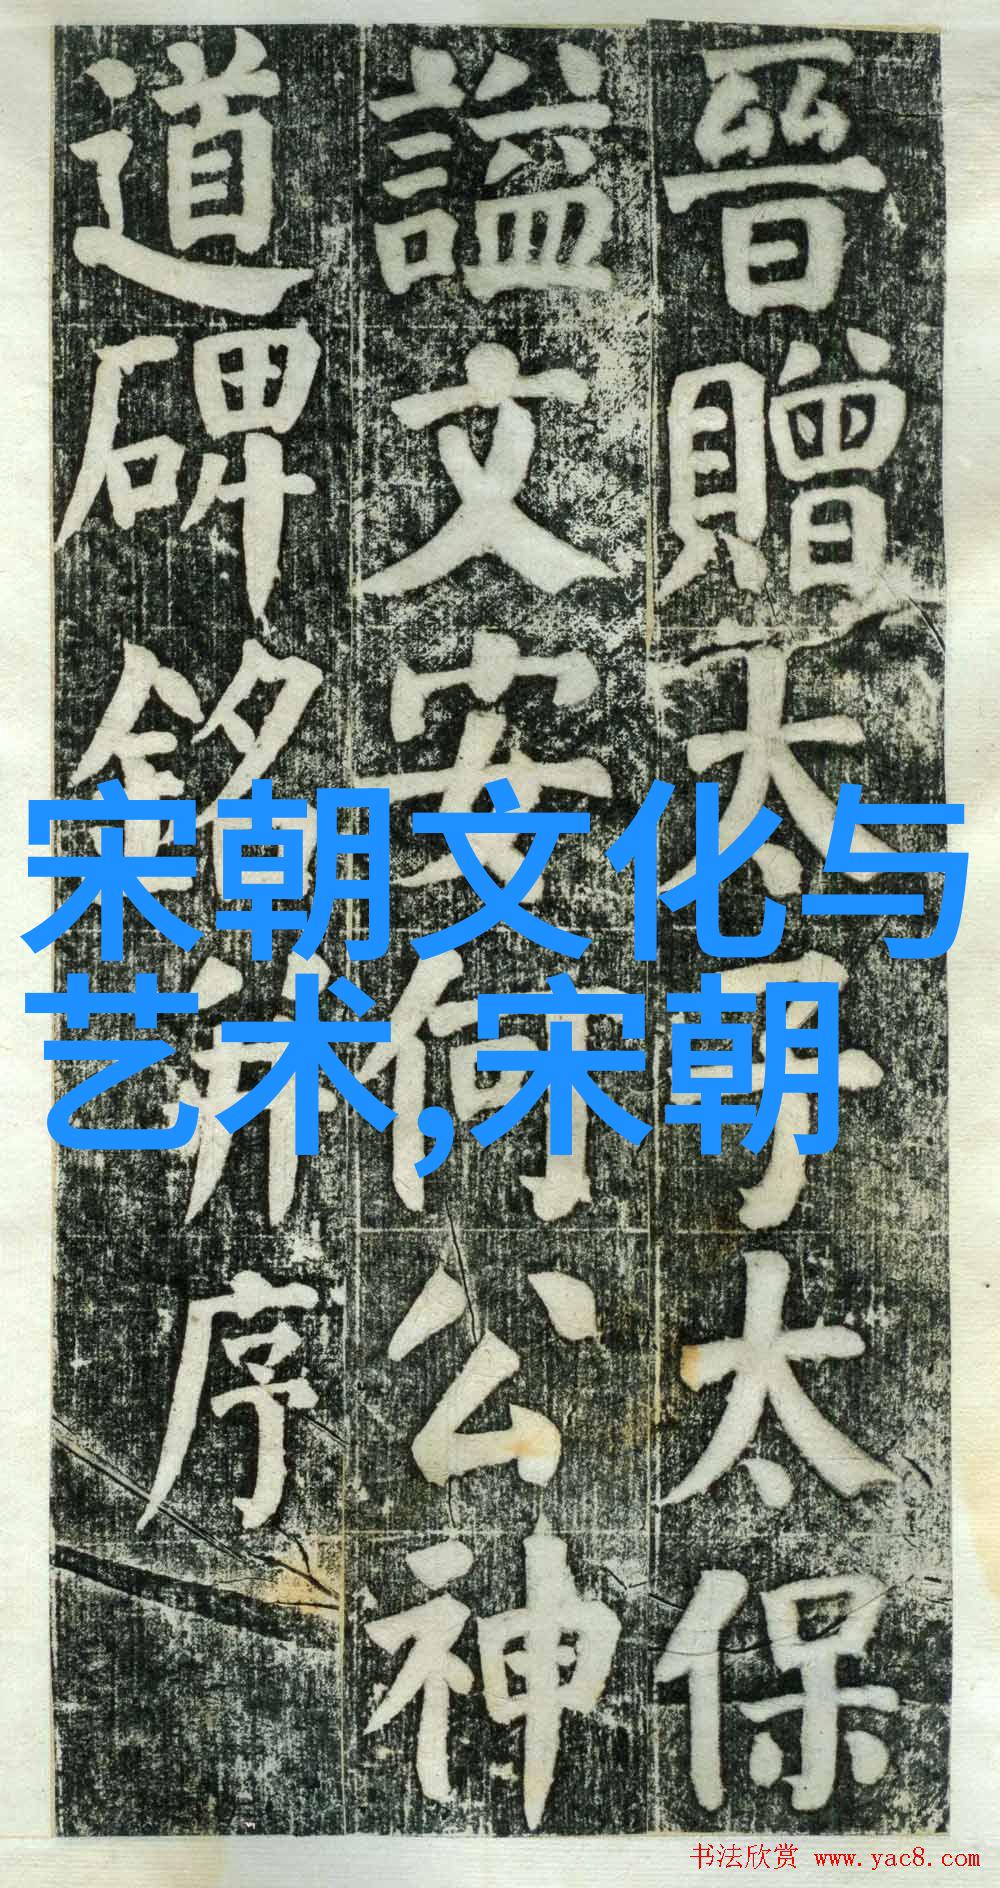 晉贈太子太保
謚文安何公神
道碑銘并序
宋朝文化与
艺术,宋朝
书法欣赏 www.yac8.com